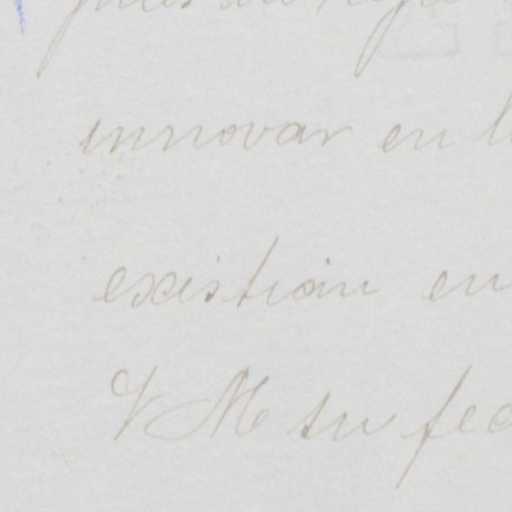 innovar en l
existian en
V M su fec